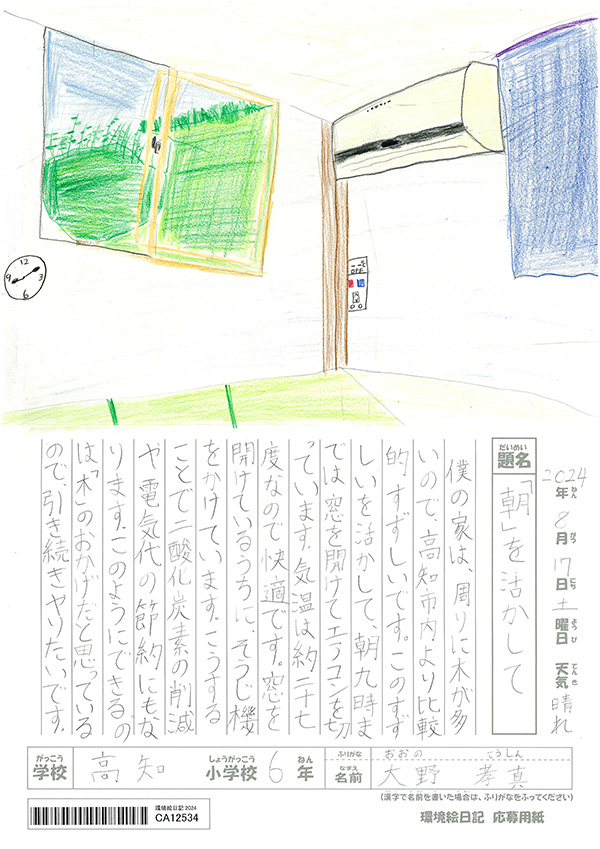 12
9
3
6
OFF
2024年 8月 17日 土曜日 天気 晴れ
ねん がつ にち ようび てんき
だいめい
題名
「朝」を活かして
僕の家は、周りに木が多
いので、高知市内より比較
的すずしいです。このすず
しいを活かして、朝九時ま
では窓を開けてエアコンを切
っています。気温は約二十七
度なので快適です。窓を
開けているうちに、そうじ機
をかけています。こうする
ことで二酸化炭素の削減
や電気代の節約にもな
ります。このようにできる、の
は、「木」のおかげだと思っている
ので、引き続きやりたいです。
がっこう しょうがっこう ねん
学校 高知 小学校 6年
ふりがな おおの こうしん
なまえ
名前 大野 孝真
(漢字で名前を書いた場合は、ふりがなをふってください)
環境絵日記2024
CA12534
環境絵日記 応募用紙